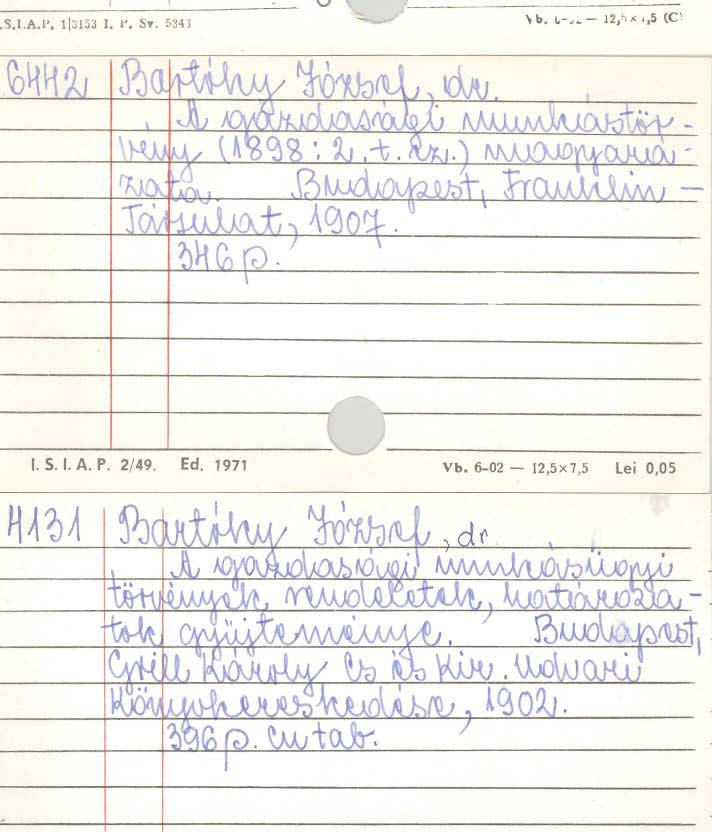 .S.I.A.P. 1|3153 I. P. Sv. 5343
12,5×7,5 (C)
6442 Bartóky József, dr.
A gazdasági munkástör-
vény (1898:2.t.cz.) magyará-
zata. Budapest, Franklin-
Társulat, 1907.
346 p.
I. S. I. A. P. 2/49. Ed. 1971 Vb. 6-02 — 12,5×7,5 Lei 0,05
4131 Bartóky József, dr.
A gazdasági munkásügyi
törvények, rendeletek, határoza-
tok gyűjteménye. Budapest,
Grill Károly cs és kir. Udvari
Könyvkereskedése, 1902.
396 p. cu tab.